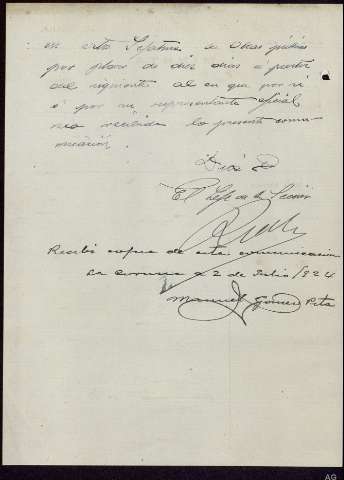 en esta Jefatura de Obras públicas
por plazo de diez dias a partir
del siguiente al en que por si
ó por su representante oficial
sea recibida la presente comu-
nicación.
El Jefe de la Sección
Recibi copia de esta comunicación
La Coruna a 2 de Julio 1924
Manuel Gomez Pita
AG